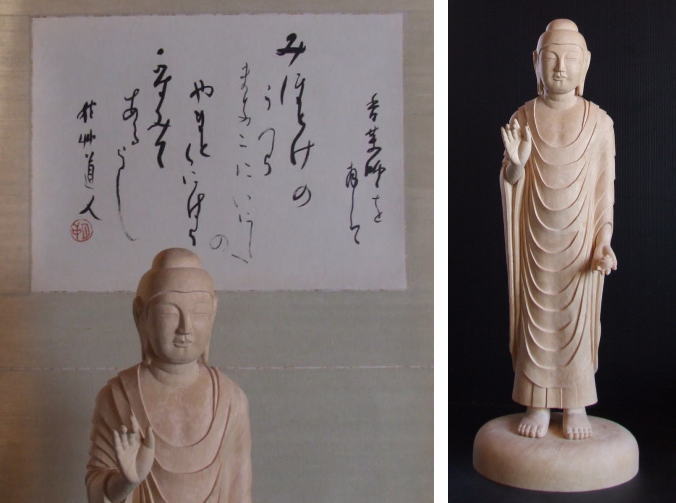 香薬師を
拝して
みほとけの
うつら
まなこにいにしへ
の
やまとくにはら
かすみて
あるらし
秋艸道人